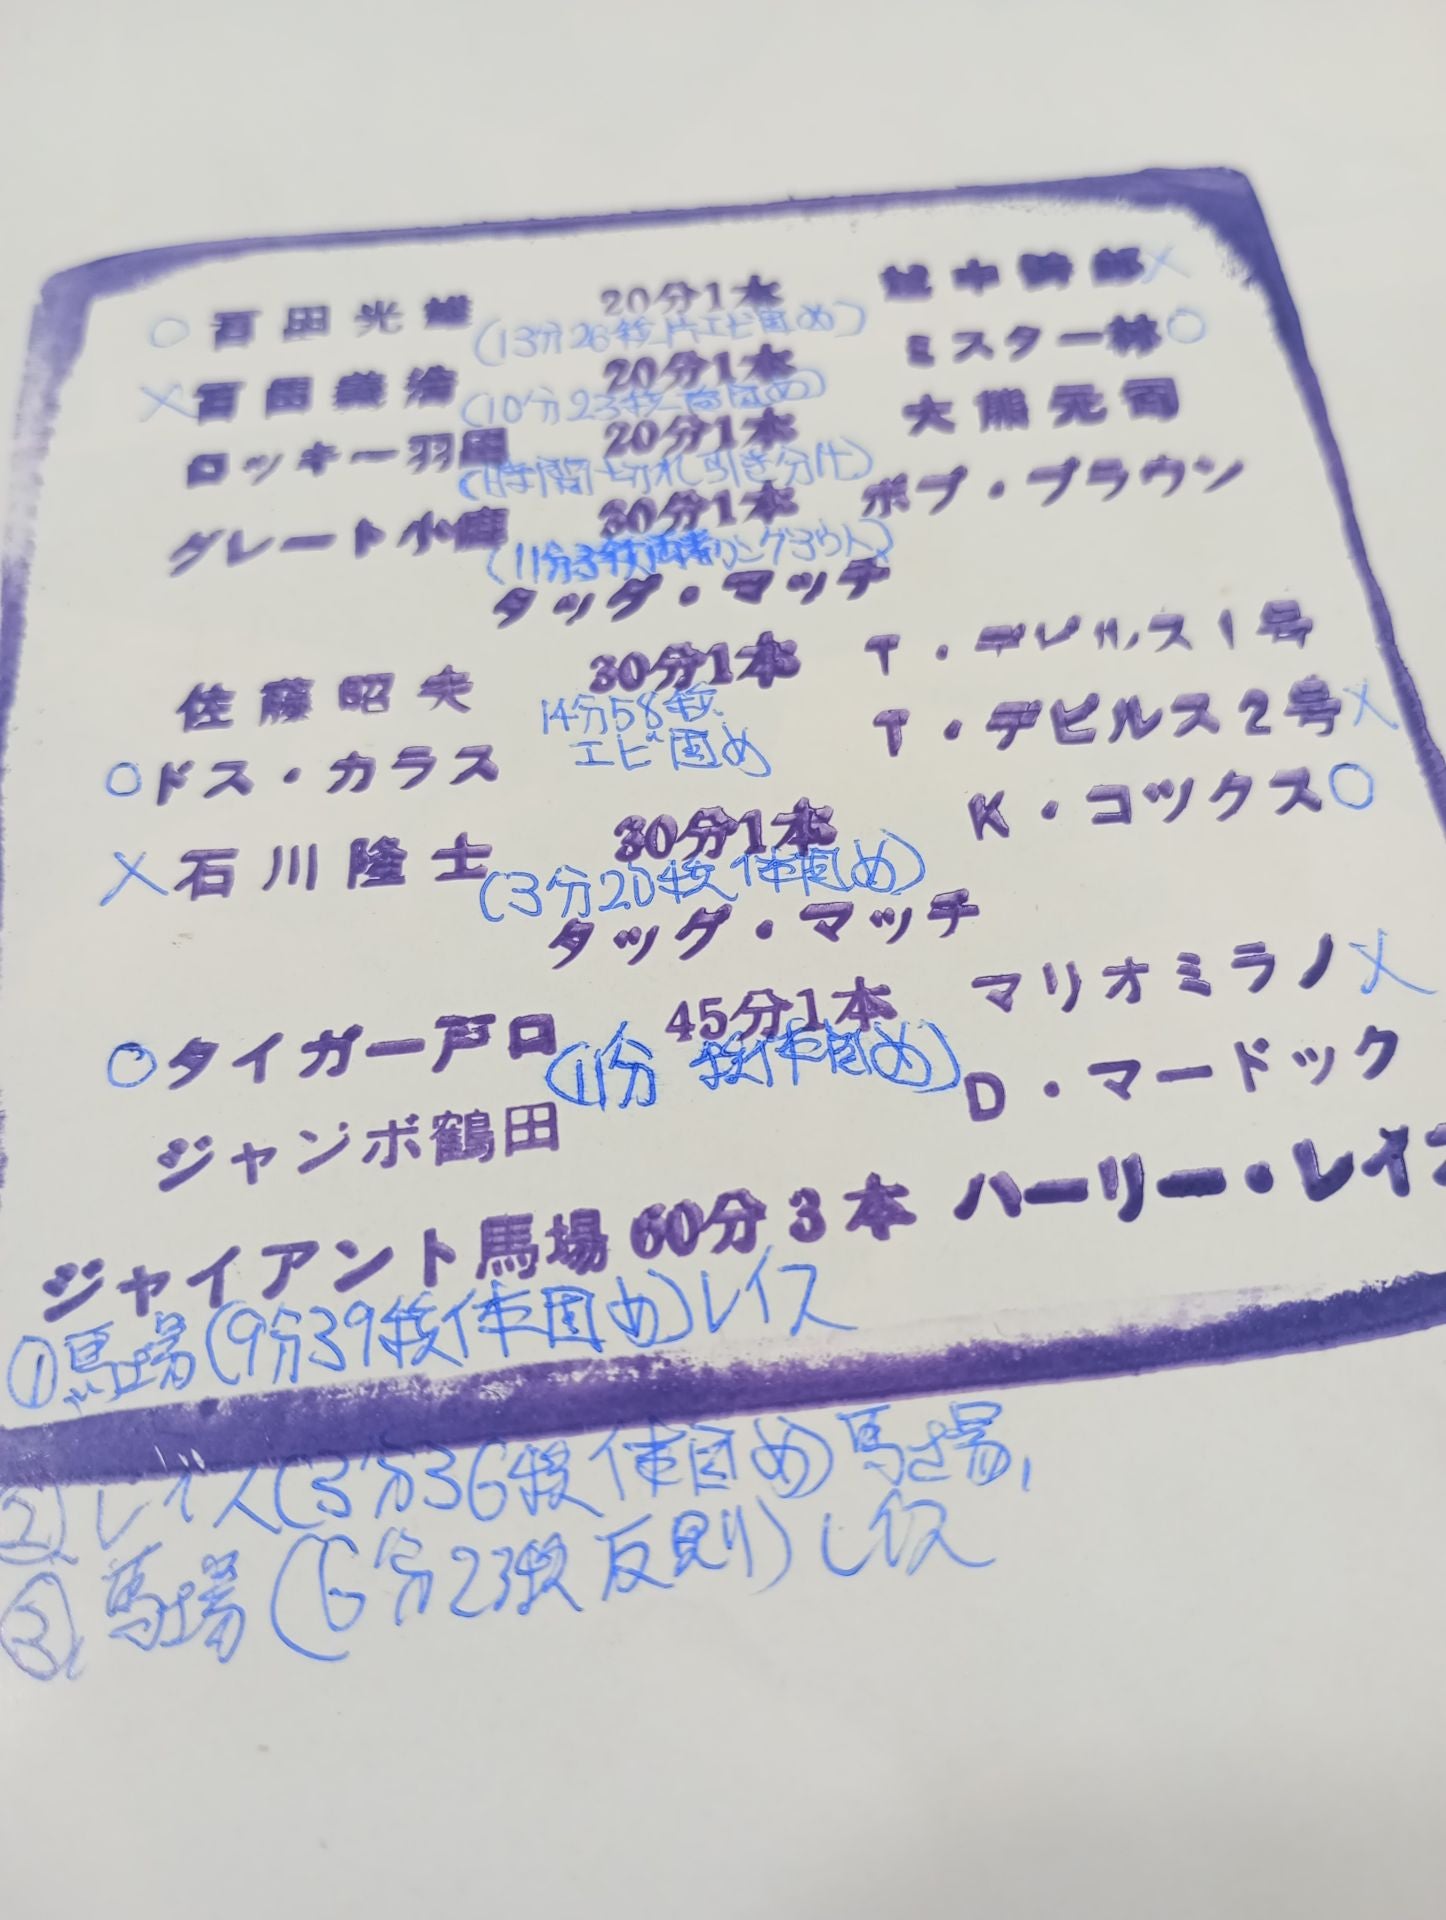 ○ 百田光雄 20分1本 越中詩郎 ×
(13分26秒片エビ固め)
× 百田義浩 20分1本 ミスター林 ○
(10分23秒 固め)
ロッキー羽田 20分1本 大熊元司
(時間切れ引き分け)
グレート小鹿 30分1本 ボブ・ブラウン
(11分3秒両者リングアウト)
タッグ・マッチ
佐藤昭夫 30分1本 T・デビルス1号
○ ドス・カラス 14分58秒 T・デビルス2号 ×
エビ固め
× 石川隆士 30分1本 K・コックス ○
(3分20秒体固め)
タッグ・マッチ
○ タイガー戸口 45分1本 マリオミラノ ×
(11分 秒体固め)
ジャンボ鶴田 D・マードック
ジャイアント馬場 60分3本 ハーリー・レイス
①馬場(9分39秒体固め)レイス
②レイス(3分36秒体固め)馬場
③馬場(6分23秒反則)レイス